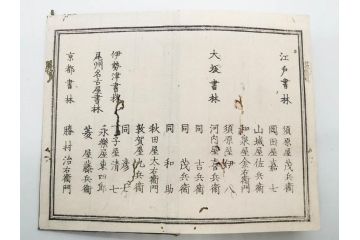 江戸書林
須原屋茂兵衛
岡田屋嘉七
和泉屋金右衛門
山城屋佐兵衛
須原屋伊八
大坂書林
河内屋喜兵衛
同 吉兵衛
同 茂兵衛
同 和助
秋田屋太右衛門
敦賀屋九兵衛
同 彦七
伊勢津書林
屋清七
尾州名古屋書林
永樂屋東四郎
菱屋藤兵衛
京都書林
勝村治右衛門